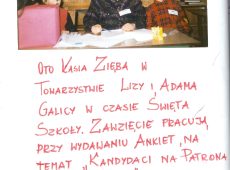 OTO KASIA ZIĘBA W
TOWARZYSTWIE LIZY I ADAMA
GALICY W CZASIE ŚWIĘTA
SZKOŁY. ZAWZIĘCIE PRACUJĄ
PRZY WYDAWANIU ANKIET „NA
TEMAT „KANDYDACI NA PATRONA